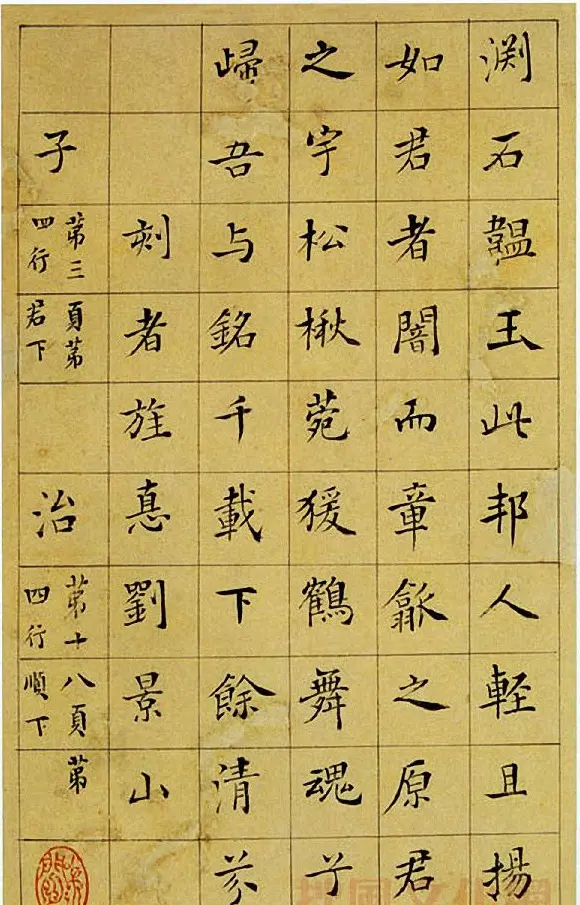 渕石韞玉此邦人輕且揚
如君者闇而章龢之原君
之宇松楸菀猨鶴舞魂兮
歸吾与銘千載下餘清芬
刻者旌悳劉景山
子
第三頁第
四行君下
治
第十八頁第
四行順下